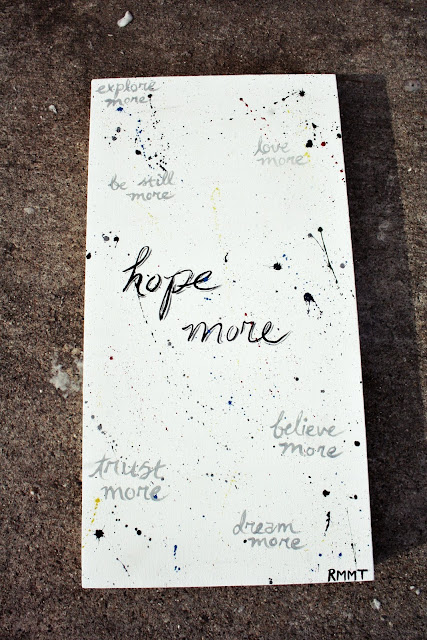 explore
more
love
more
be still
more
hope
more
believe
more
trust
more
dream
more
RMMT